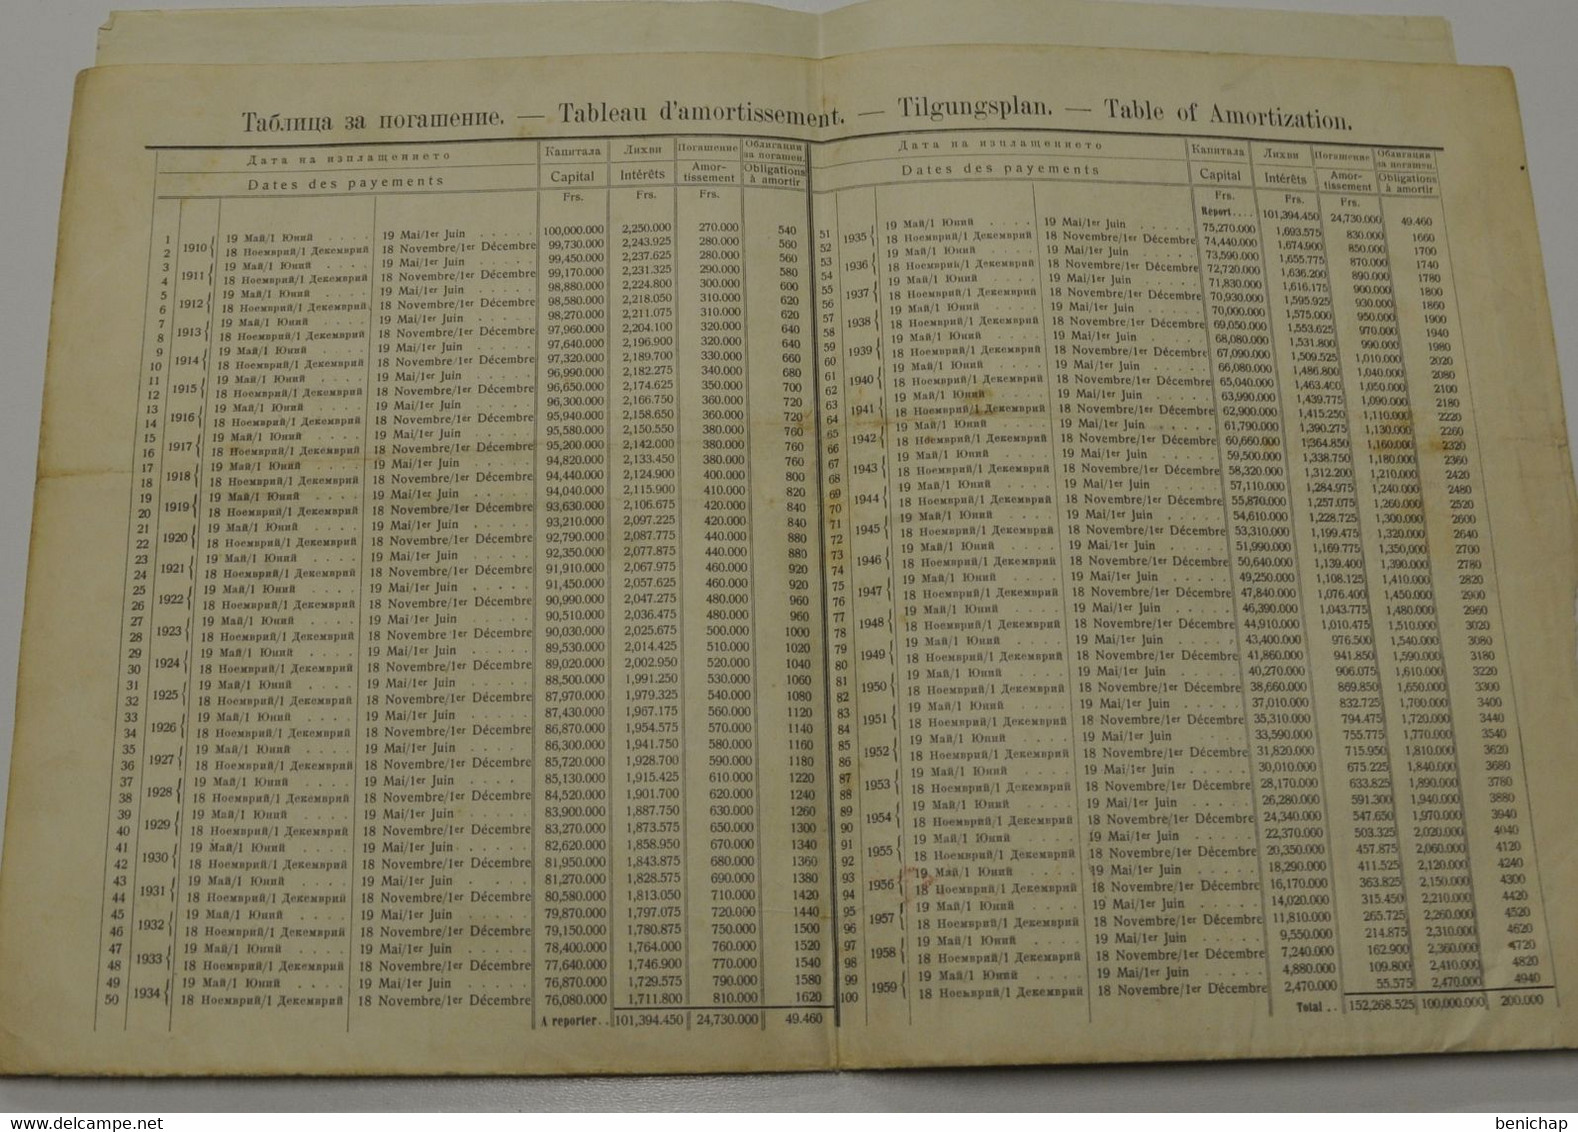 Таблица за погашение. — Tableau d'amortissement. — Tilgungsplan. — Table of Amortization.
Дата на изплащението Капитала Лихви Погашение Облигации за погашен.
Dates des payements Capital Intérêts Amortissement Obligations à amortir
Frs. Frs. Frs.
1 1910 19 Май/1 Юний . . . . 19 Mai/1er Juin . . . . . 100,000.000 2,250.000 270.000 540
2 18 Ноемврий/1 Декемврий 18 Novembre/1er Décembre 99,730.000 2,243.925 280.000 560
3 1911 19 Май/1 Юний . . . . 19 Mai/1er Juin . . . . . 99,450.000 2,237.625 280.000 560
4 18 Ноемврий/1 Декемврий 18 Novembre/1er Décembre 99,170.000 2,231.325 290.000 580
5 1912 19 Май/1 Юний . . . . 19 Mai/1er Juin . . . . . 98,880.000 2,224.800 300.000 600
6 18 Ноемврий/1 Декемврий 18 Novembre/1er Décembre 98,580.000 2,218.050 310.000 620
7 1913 19 Май/1 Юний . . . . 19 Mai/1er Juin . . . . . 98,270.000 2,211.075 310.000 620
8 18 Ноемврий/1 Декемврий 18 Novembre/1er Décembre 97,960.000 2,204.100 320.000 640
9 1914 19 Май/1 Юний . . . . 19 Mai/1er Juin . . . . . 97,640.000 2,196.900 320.000 640
10 18 Ноемврий/1 Декемврий 18 Novembre/1er Décembre 97,320.000 2,189.700 330.000 660
11 1915 19 Май/1 Юний . . . . 19 Mai/1er Juin . . . . . 96,990.000 2,182.275 340.000 680
12 18 Ноемврий/1 Декемврий 18 Novembre/1er Décembre 96,650.000 2,174.625 350.000 700
13 1916 19 Май/1 Юний . . . . 19 Mai/1er Juin . . . . . 96,300.000 2,166.750 360.000 720
14 18 Ноемврий/1 Декемврий 18 Novembre/1er Décembre 95,940.000 2,158.650 360.000 720
15 1917 19 Май/1 Юний . . . . 19 Mai/1er Juin . . . . . 95,580.000 2,150.550 380.000 760
16 18 Ноемврий/1 Декемврий 18 Novembre/1er Décembre 95,200.000 2,142.000 380.000 760
17 1918 19 Май/1 Юний . . . . 19 Mai/1er Juin . . . . . 94,820.000 2,133.450 380.000 760
18 18 Ноемврий/1 Декемврий 18 Novembre/1er Décembre 94,440.000 2,124.900 400.000 800
19 1919 19 Май/1 Юний . . . . 19 Mai/1er Juin . . . . . 94,040.000 2,115.900 410.000 820
20 18 Ноемврий/1 Декемврий 18 Novembre/1er Décembre 93,630.000 2,106.675 420.000 840
21 1920 19 Май/1 Юний . . . . 19 Mai/1er Juin . . . . . 93,210.000 2,097.225 420.000 840
22 18 Ноемврий/1 Декемврий 18 Novembre/1er Décembre 92,790.000 2,087.775 440.000 880
23 1921 19 Май/1 Юний . . . . 19 Mai/1er Juin . . . . . 92,350.000 2,077.875 440.000 880
24 18 Ноемврий/1 Декемврий 18 Novembre/1er Décembre 91,910.000 2,067.975 460.000 920
25 1922 19 Май/1 Юний . . . . 19 Mai/1er Juin . . . . . 91,450.000 2,057.625 460.000 920
26 18 Ноемврий/1 Декемврий 18 Novembre/1er Décembre 90,990.000 2,047.275 480.000 960
27 1923 19 Май/1 Юний . . . . 19 Mai/1er Juin . . . . . 90,510.000 2,036.475 480.000 960
28 18 Ноемврий/1 Декемврий 18 Novembre 1er Décembre 90,030.000 2,025.675 500.000 1000
29 1924 19 Май/1 Юний . . . . 19 Mai/1er Juin . . . . . 89,530.000 2,014.425 510.000 1020
30 18 Ноемврий/1 Декемврий 18 Novembre/1er Décembre 89,020.000 2,002.950 520.000 1040
31 1925 19 Май/1 Юний . . . . 19 Mai/1er Juin . . . . . 88,500.000 1,991.250 530.000 1060
32 18 Ноемврий/1 Декемврий 18 Novembre/1er Décembre 87,970.000 1,979.325 540.000 1080
33 1926 19 Май/1 Юний . . . . 19 Mai/1er Juin . . . . . 87,430.000 1,967.175 560.000 1120
34 18 Ноемврий/1 Декемврий 18 Novembre/1er Décembre 86,870.000 1,954.575 570.000 1140
35 1927 19 Май/1 Юний . . . . 19 Mai/1er Juin . . . . . 86,300.000 1,941.750 580.000 1160
36 18 Ноемврий/1 Декемврий 18 Novembre/1er Décembre 85,720.000 1,928.700 590.000 1180
37 1928 19 Май/1 Юний . . . . 19 Mai/1er Juin . . . . 85,130.000 1,915.425 610.000 1220
38 18 Ноемврий/1 Декемврий 18 Novembre/1er Décembre 84,520.000 1,901.700 620.000 1240
39 1929 19 Май/1 Юний . . . . 19 Mai/1er Juin . . . . . 83,900.000 1,887.750 630.000 1260
40 18 Ноемврий/1 Декемврий 18 Novembre/1er Décembre 83,270.000 1,873.575 650.000 1300
41 1930 19 Май/1 Юний . . . . 19 Mai/1er Juin . . . . . 82,620.000 1,858.950 670.000 1340
42 18 Ноемврий/1 Декемврий 18 Novembre/1er Décembre 81,950.000 1,843.875 680.000 1360
43 1931 19 Май/1 Юний . . . . 19 Mai/1er Juin . . . . . 81,270.000 1,828.575 690.000 1380
44 18 Ноемврий/1 Декемврий 18 Novembre/1er Décembre 80,580.000 1,813.050 710.000 1420
45 1932 19 Май/1 Юний . . . . 19 Mai/1er Juin . . . . . 79,870.000 1,797.075 720.000 1440
46 18 Ноемврий/1 Декемврий 18 Novembre/1er Décembre 79,150.000 1,780.875 750.000 1500
47 1933 19 Май/1 Юний . . . . 19 Mai/1er Juin . . . . . 78,400.000 1,764.000 760.000 1520
48 18 Ноемврий/1 Декемврий 18 Novembre/1er Décembre 77,640.000 1,746.900 770.000 1540
49 1934 19 Май/1 Юний . . . . 19 Mai/1er Juin . . . . . 76,870.000 1,729.575 790.000 1580
50 18 Ноемврий/1 Декемврий 18 Novembre/1er Décembre 76,080.000 1,711.800 810.000 1620
A reporter . . 101,394.450 24,730.000 49.460
Дата на изплащението Капитала Лихви Погашение Облигации за погашен.
Dates des payements Capital Intérêts Amortissement Obligations à amortir
Frs. Frs. Frs.
Report . . . . 101,394.450 24,730.000 49.460
51 1935 19 Май/1 Юний . . . . 19 Mai/1er Juin . . . . . 75,270.000 1,693.575 830.000 1660
52 18 Ноемврий/1 Декемврий 18 Novembre/1er Décembre 74,440.000 1,674.900 850.000 1700
53 1936 19 Май/1 Юний . . . . 19 Mai/1er Juin . . . . . 73,590.000 1,655.775 870.000 1740
54 18 Ноемврий/1 Декемврий 18 Novembre/1er Décembre 72,720.000 1,636.200 890.000 1780
55 1937 19 Май/1 Юний . . . . 19 Mai/1er Juin . . . . . 71,830.000 1,616.175 900.000 1800
56 18 Ноемврий/1 Декемврий 18 Novembre/1er Décembre 70,930.000 1,595.925 930.000 1860
57 1938 19 Май/1 Юний . . . . 19 Mai/1er Juin . . . . . 70,000.000 1,575.000 950.000 1900
58 18 Ноемврий/1 Декемврий 18 Novembre/1er Décembre 69,050.000 1,553.625 970.000 1940
59 1939 19 Май/1 Юний . . . . 19 Mai/1er Juin . . . . . 68,080.000 1,531.800 990.000 1980
60 18 Ноемврий/1 Декемврий 18 Novembre/1er Décembre 67,090.000 1,509.525 1,010.000 2020
61 1940 19 Май/1 Юний . . . . 19 Mai/1er Juin . . . . . 66,080.000 1,486.800 1,040.000 2080
62 18 Ноемврий/1 Декемврий 18 Novembre/1er Décembre 65,040.000 1,463.400 1,050.000 2100
63 1941 19 Май/1 Юний . . . . 19 Mai/1er Juin . . . . . 63,990.000 1,439.775 1,090.000 2180
64 18 Ноемврий/1 Декемврий 18 Novembre/1er Décembre 62,900.000 1,415.250 1,110.000 2220
65 1942 19 Май/1 Юний . . . . 19 Mai/1er Juin . . . . . 61,790.000 1,390.275 1,130.000 2260
66 18 Ноемврий/1 Декемврий 18 Novembre/1er Décembre 60,660.000 1,364.850 1,160.000 2320
67 1943 19 Май/1 Юний . . . . 19 Mai/1er Juin . . . . . 59,500.000 1,338.750 1,180.000 2360
68 18 Ноемврий/1 Декемврий 18 Novembre/1er Décembre 58,320.000 1,312.200 1,210.000 2420
69 1944 19 Май/1 Юний . . . . 19 Mai/1er Juin . . . . . 57,110.000 1,284.975 1,240.000 2480
70 18 Ноемврий/1 Декемврий 18 Novembre/1er Décembre 55,870.000 1,257.075 1,260.000 2520
71 1945 19 Май/1 Юний . . . . 19 Mai/1er Juin . . . . . 54,610.000 1,228.725 1,300.000 2600
72 18 Ноемврий/1 Декемврий 18 Novembre/1er Décembre 53,310.000 1,199.475 1,320.000 2640
73 1946 19 Май/1 Юний . . . . 19 Mai/1er Juin . . . . . 51,990.000 1,169.775 1,350,000 2700
74 18 Ноемврий/1 Декемврий 18 Novembre/1er Décembre 50,640.000 1,139.400 1,390.000 2780
75 1947 19 Май/1 Юний . . . . 19 Mai/1er Juin . . . . . 49,250.000 1,108.125 1,410.000 2820
76 18 Ноемврий/1 Декемврий 18 Novembre/1er Décembre 47,840.000 1,076.400 1,450.000 2900
77 1948 19 Май/1 Юний . . . . 19 Mai/1er Juin . . . . . 46,390.000 1,043.775 1,480.000 2960
78 18 Ноемврий/1 Декемврий 18 Novembre/1er Décembre 44,910.000 1,010.475 1,510.000 3020
79 1949 19 Май/1 Юний . . . . 19 Mai/1er Juin . . . . . 43,400.000 976.500 1,540.000 3080
80 18 Ноемврий/1 Декемврий 18 Novembre/1er Décembre 41,860.000 941.850 1,590.000 3180
81 1950 19 Май/1 Юний . . . . 19 Mai/1er Juin . . . . . 40,270.000 906.075 1,610.000 3220
82 18 Ноемврий/1 Декемврий 18 Novembre/1er Décembre 38,660.000 869.850 1,650.000 3300
83 1951 19 Май/1 Юний . . . . 19 Mai/1er Juin . . . . . 37,010.000 832.725 1,700.000 3400
84 18 Ноемврий/1 Декемврий 18 Novembre/1er Décembre 35,310.000 794.475 1,720.000 3440
85 1952 19 Май/1 Юний . . . . 19 Mai/1er Juin . . . . . 33,590.000 755.775 1,770.000 3540
86 18 Ноемврий/1 Декемврий 18 Novembre/1er Décembre 31,820.000 715.950 1,810.000 3620
87 1953 19 Май/1 Юний . . . . 19 Mai/1er Juin . . . . . 30,010.000 675.225 1,840.000 3680
88 18 Ноемврий/1 Декемврий 18 Novembre/1er Décembre 28,170.000 633.825 1,890.000 3780
89 1954 19 Май/1 Юний . . . . 19 Mai/1er Juin . . . . . 26,280.000 591.300 1,940.000 3880
90 18 Ноемврий/1 Декемврий 18 Novembre/1er Décembre 24,340.000 547.650 1,970.000 3940
91 1955 19 Май/1 Юний . . . . 19 Mai/1er Juin . . . . . 22,370.000 503.325 2,020.000 4040
92 18 Ноемврий/1 Декемврий 18 Novembre/1er Décembre 20,350.000 457.875 2,060.000 4120
93 1956 19 Май/1 Юний . . . . 19 Mai/1er Juin . . . . . 18,290.000 411.525 2,120.000 4240
94 18 Ноемврий/1 Декемврий 18 Novembre/1er Décembre 16,170.000 363.825 2,150.000 4300
95 1957 19 Май/1 Юний . . . . 19 Mai/1er Juin . . . . . 14,020.000 315.450 2,210.000 4420
96 18 Ноемврий/1 Декемврий 18 Novembre/1er Décembre 11,810.000 265.725 2,260.000 4520
97 1958 19 Май/1 Юний . . . . 19 Mai/1er Juin . . . . . 9,550.000 214.875 2,310.000 4620
98 18 Ноемврий/1 Декемврий 18 Novembre/1er Décembre 7,240.000 162.900 2,360.000 4720
99 1959 19 Май/1 Юний . . . . 19 Mai/1er Juin . . . . . 4,880.000 109.800 2,410.000 4820
100 18 Ноемврий/1 Декемврий 18 Novembre/1er Décembre 2,470.000 55.575 2,470.000 4940
Total . . 152,268.525 100,000.000 200.000
benichap